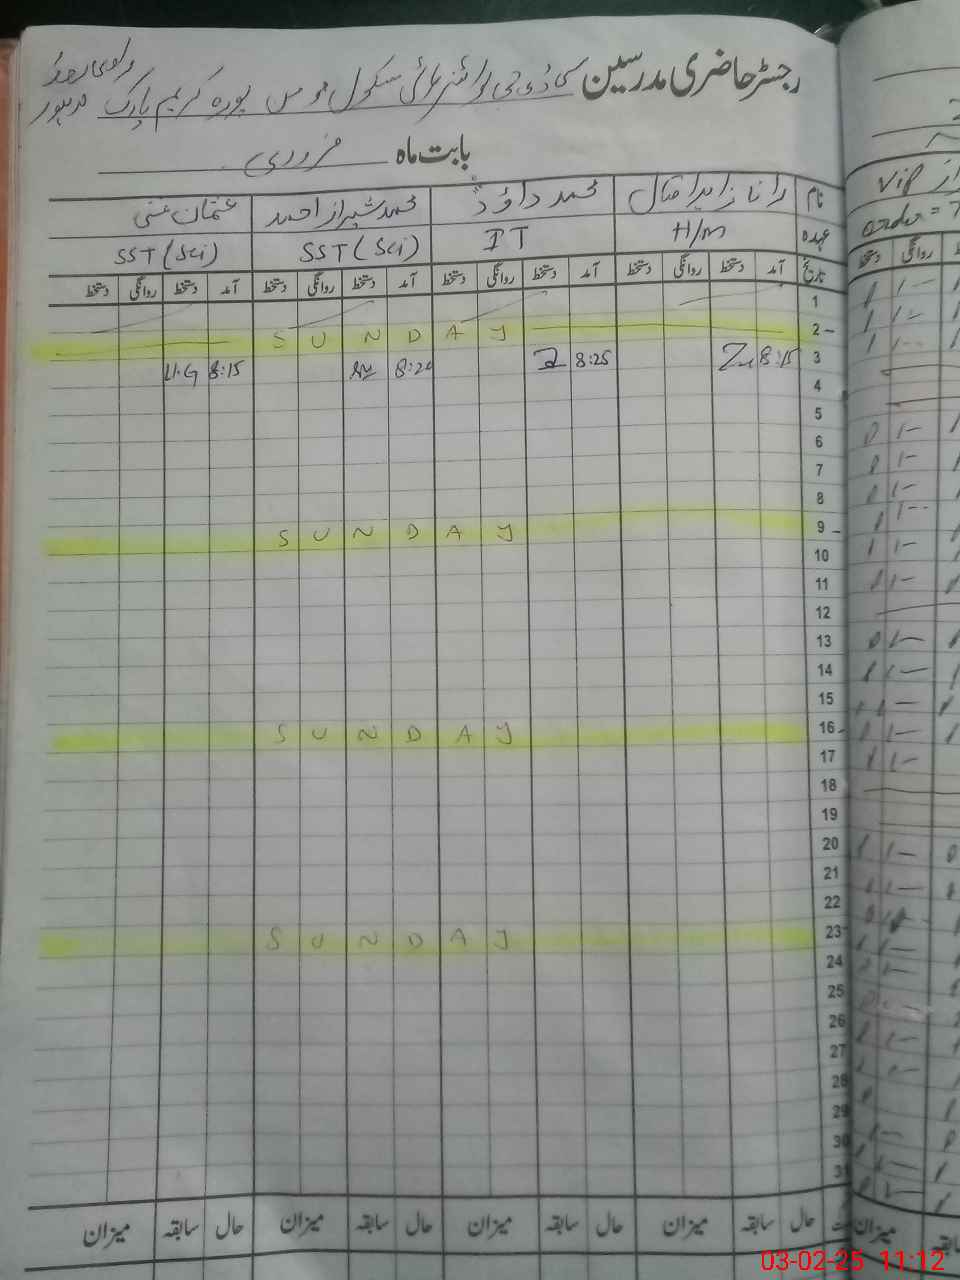 رجسٹر حاضری مدرسین
ہائی سکول پورہ کریم پارک
بابت ماہ فروری
نام رانا زاہد اقبال محمد داؤد محمد شیراز احمد عثمان غنی
عہدہ H/M PT SST (Sci) SST (Sci)
تاریخ آمد دستخط روانگی دستخط آمد دستخط روانگی دستخط آمد دستخط روانگی دستخط آمد دستخط روانگی دستخط
1
2 SUNDAY
3 8:15 8:25 8:20 U.G 8:15
4
5
6
7
8
9 SUNDAY
10
11
12
13
14
15
16 SUNDAY
17
18
19
20
21
22
23 SUNDAY
24
25
26
27
28
29
30
31
حال سابقہ میزان حال سابقہ میزان حال سابقہ میزان حال سابقہ میزان
روانگی دستخط
میزان
03-02-25 11:12